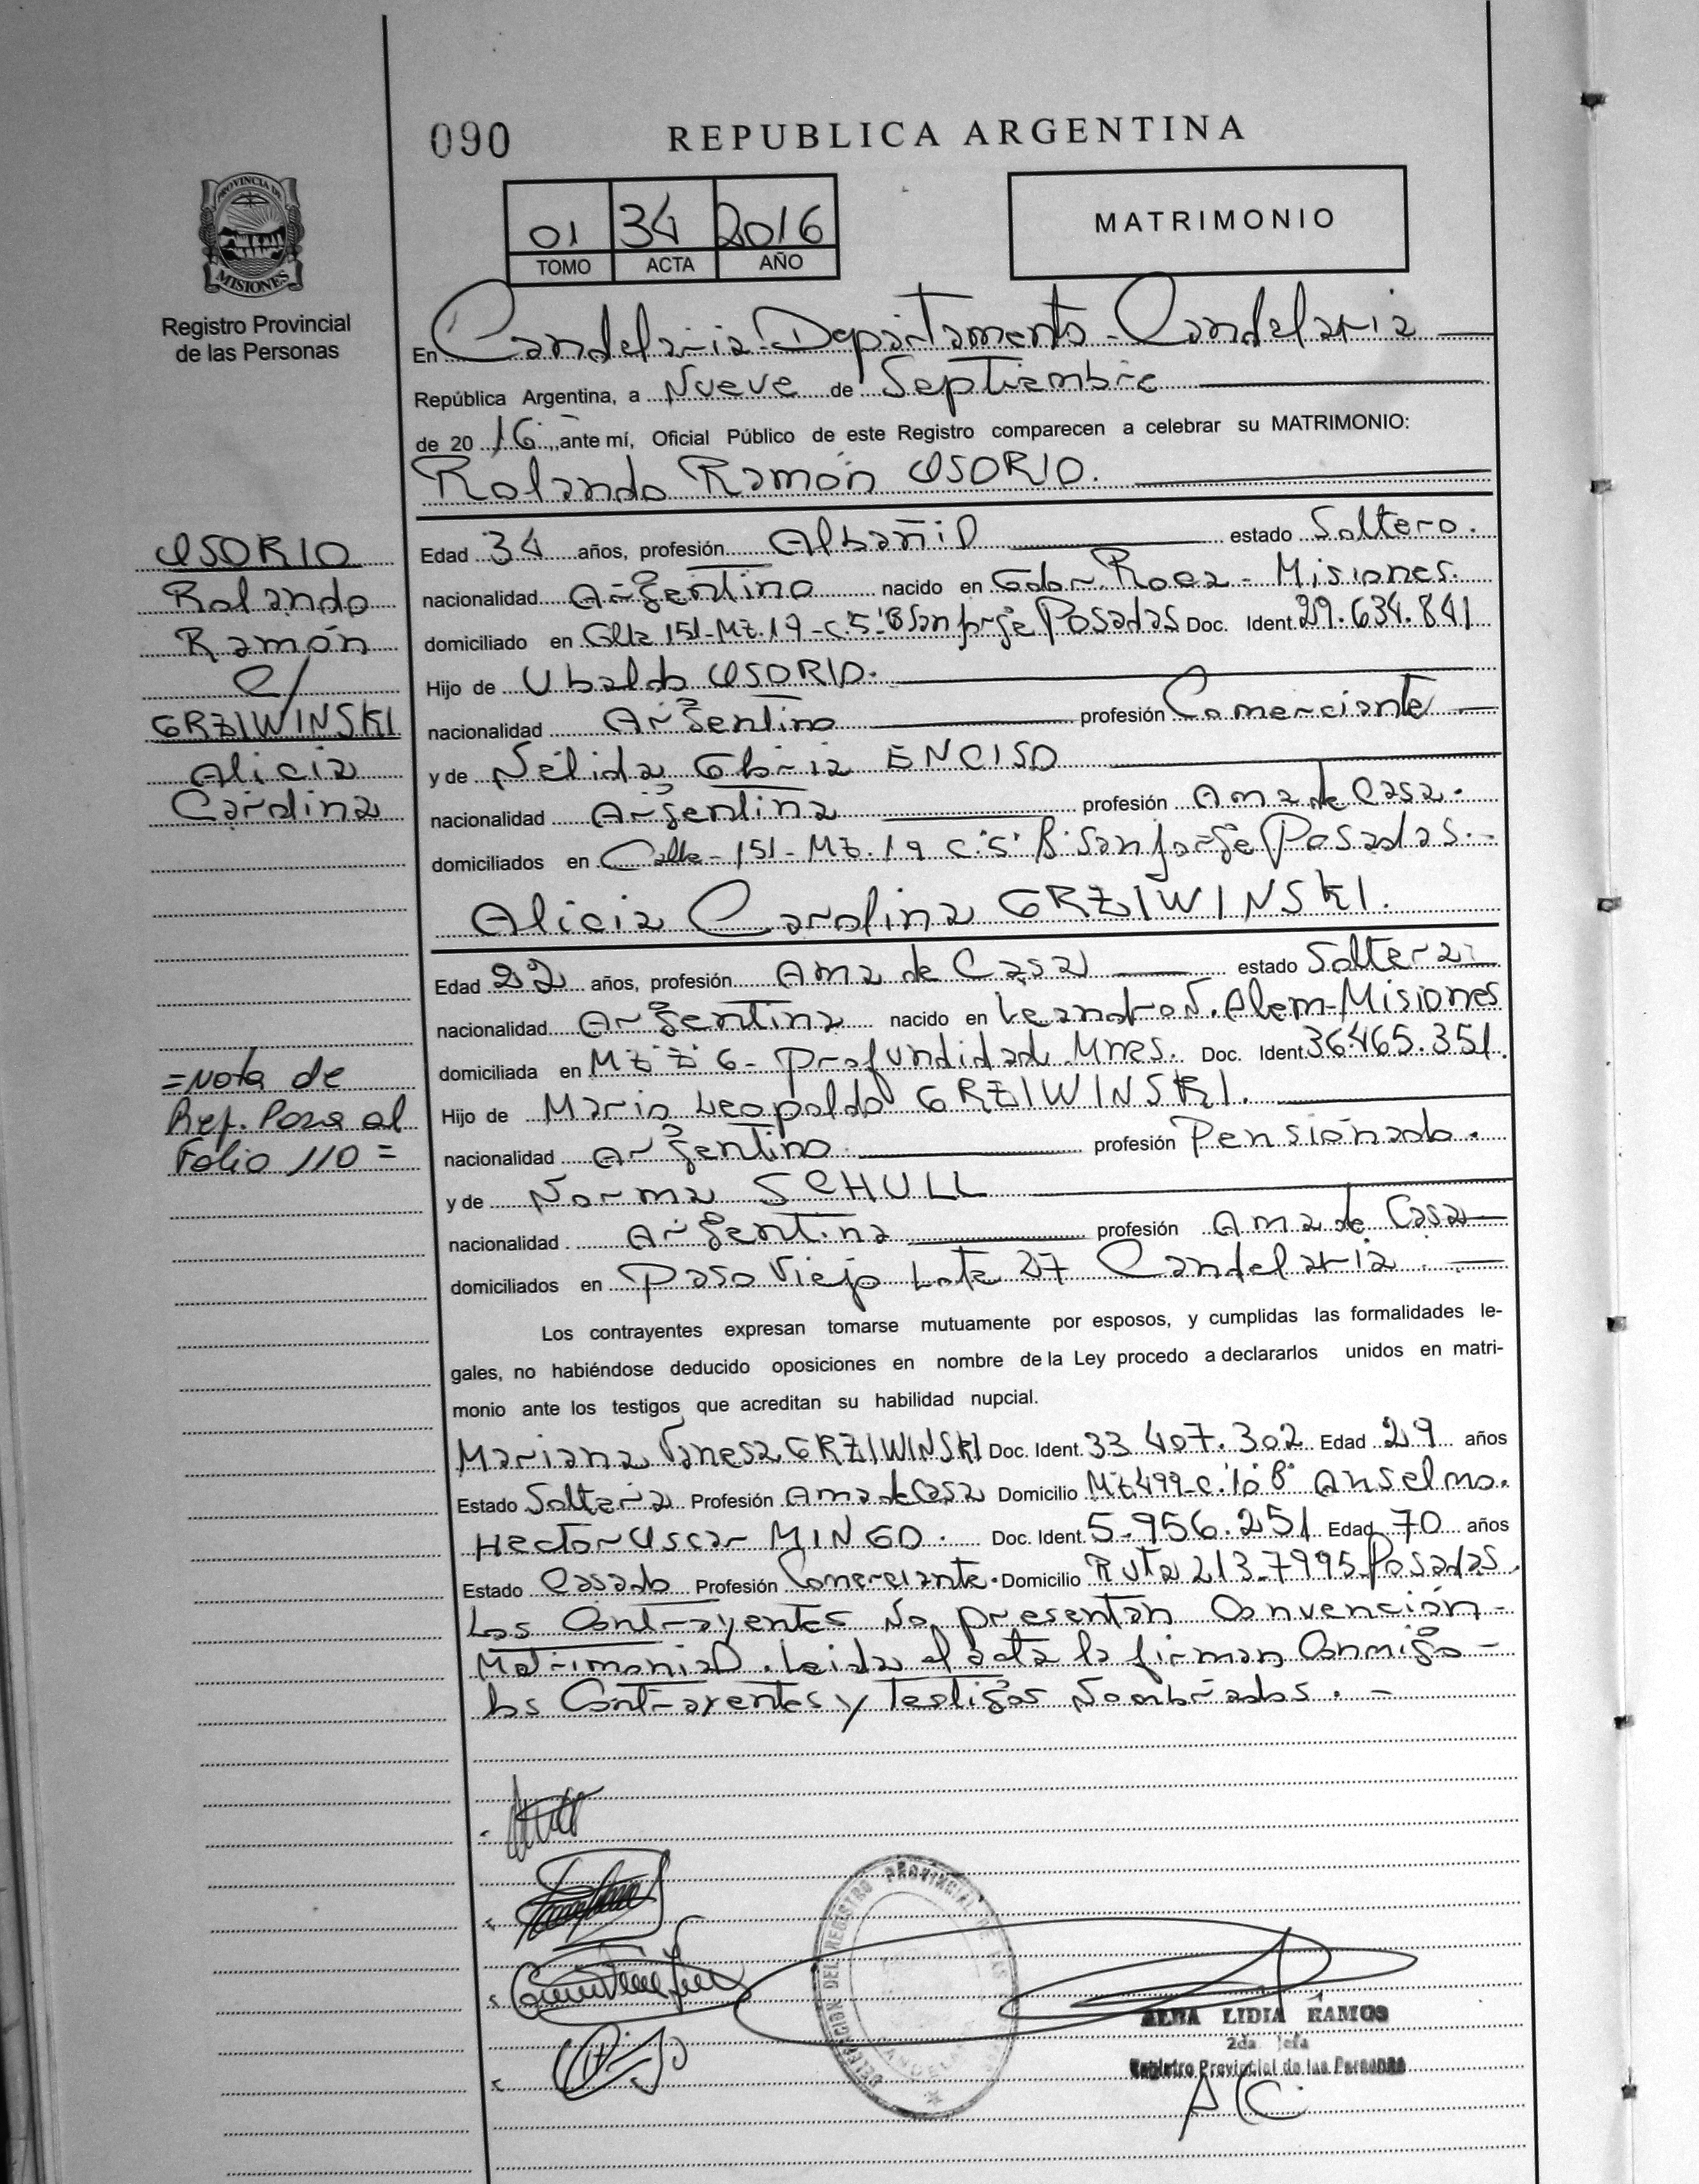 090
REPUBLICA ARGENTINA
PROVINCIA DE
MISIONES
Registro Provincial
de las Personas
01 34 2016
TOMO ACTA AÑO
MATRIMONIO
En Candelaria-Departamento-Candelaria
República Argentina, a Nueve de Septiembre
de 20 16 ante mí, Oficial Público de este Registro comparecen a celebrar su MATRIMONIO:
Rolando Ramón OSORIO.
OSORIO
Rolando
Ramón
C/
GRZIWINSKI
Alicia
Carolina
Edad 34 años, profesión Albañil estado Soltero.
nacionalidad Argentino nacido en Gdor. Roca - Misiones.
domiciliado en Calle 151-Mz.19-C.5-B San Jorge Posadas Doc. Ident. 29.634.841
Hijo de Ubaldo OSORIO.
nacionalidad Argentino profesión Comerciante
y de Nélida Gloria ENCISO
nacionalidad Argentina profesión Ama de Casa.
domiciliados en Calle-151-Mz.19 C.5 B San Jorge Posadas.-
Alicia Carolina GRZIWINSKI.
Edad 22 años, profesión Ama de Casa estado Soltera
nacionalidad Argentina nacido en Leandro N. Alem-Misiones
domiciliada en Mz Z 6- Profundidad Mnes. Doc. Ident. 36.465.351.
Hijo de Mario Leopoldo GRZIWINSKI.
nacionalidad Argentino. profesión Pensionado.
y de Norma SCHULL
nacionalidad Argentina profesión Ama de Casa
domiciliados en Paso Viejo Lote 27 Candelaria.
=Nota de
Ref. Pasa al
Folio 110=
Los contrayentes expresan tomarse mutuamente por esposos, y cumplidas las formalidades le-
gales, no habiéndose deducido oposiciones en nombre de la Ley procedo a declararlos unidos en matri-
monio ante los testigos que acreditan su habilidad nupcial.
Mariana Vanesa GRZIWINSKI Doc. Ident. 33.407.302 Edad 29 años
Estado Soltera Profesión Ama de Casa Domicilio Mz 499-C.10 B° Anselmo.
Hector Oscar MINGO. Doc. Ident. 5.956.251 Edad 70 años
Estado Casado Profesión Comerciante. Domicilio Ruta 213-7995 Posadas.
Los Contrayentes No presentan Convención-
Matrimonial. Leida el acta la firman Conmigo-
los Contrayentes y Testigos Nombrados.-
DELEGACION DEL REGISTRO PROVINCIAL DE LAS
ALBA LIDIA RAMOS
2da. Jefa
Registro Provincial de las Personas
A/C.